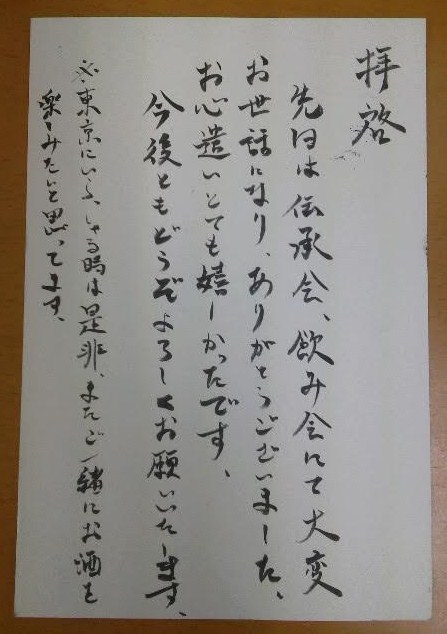 拝啓
先日は伝承会、飲み会にて大変
お世話になり、ありがとうございました、
お心遣いとても嬉しかったです、
今後ともどうぞよろしくお願いいたします、
※東京にいらっしゃる時は是非、またご一緒にお酒を
楽しみたいと思ってます、